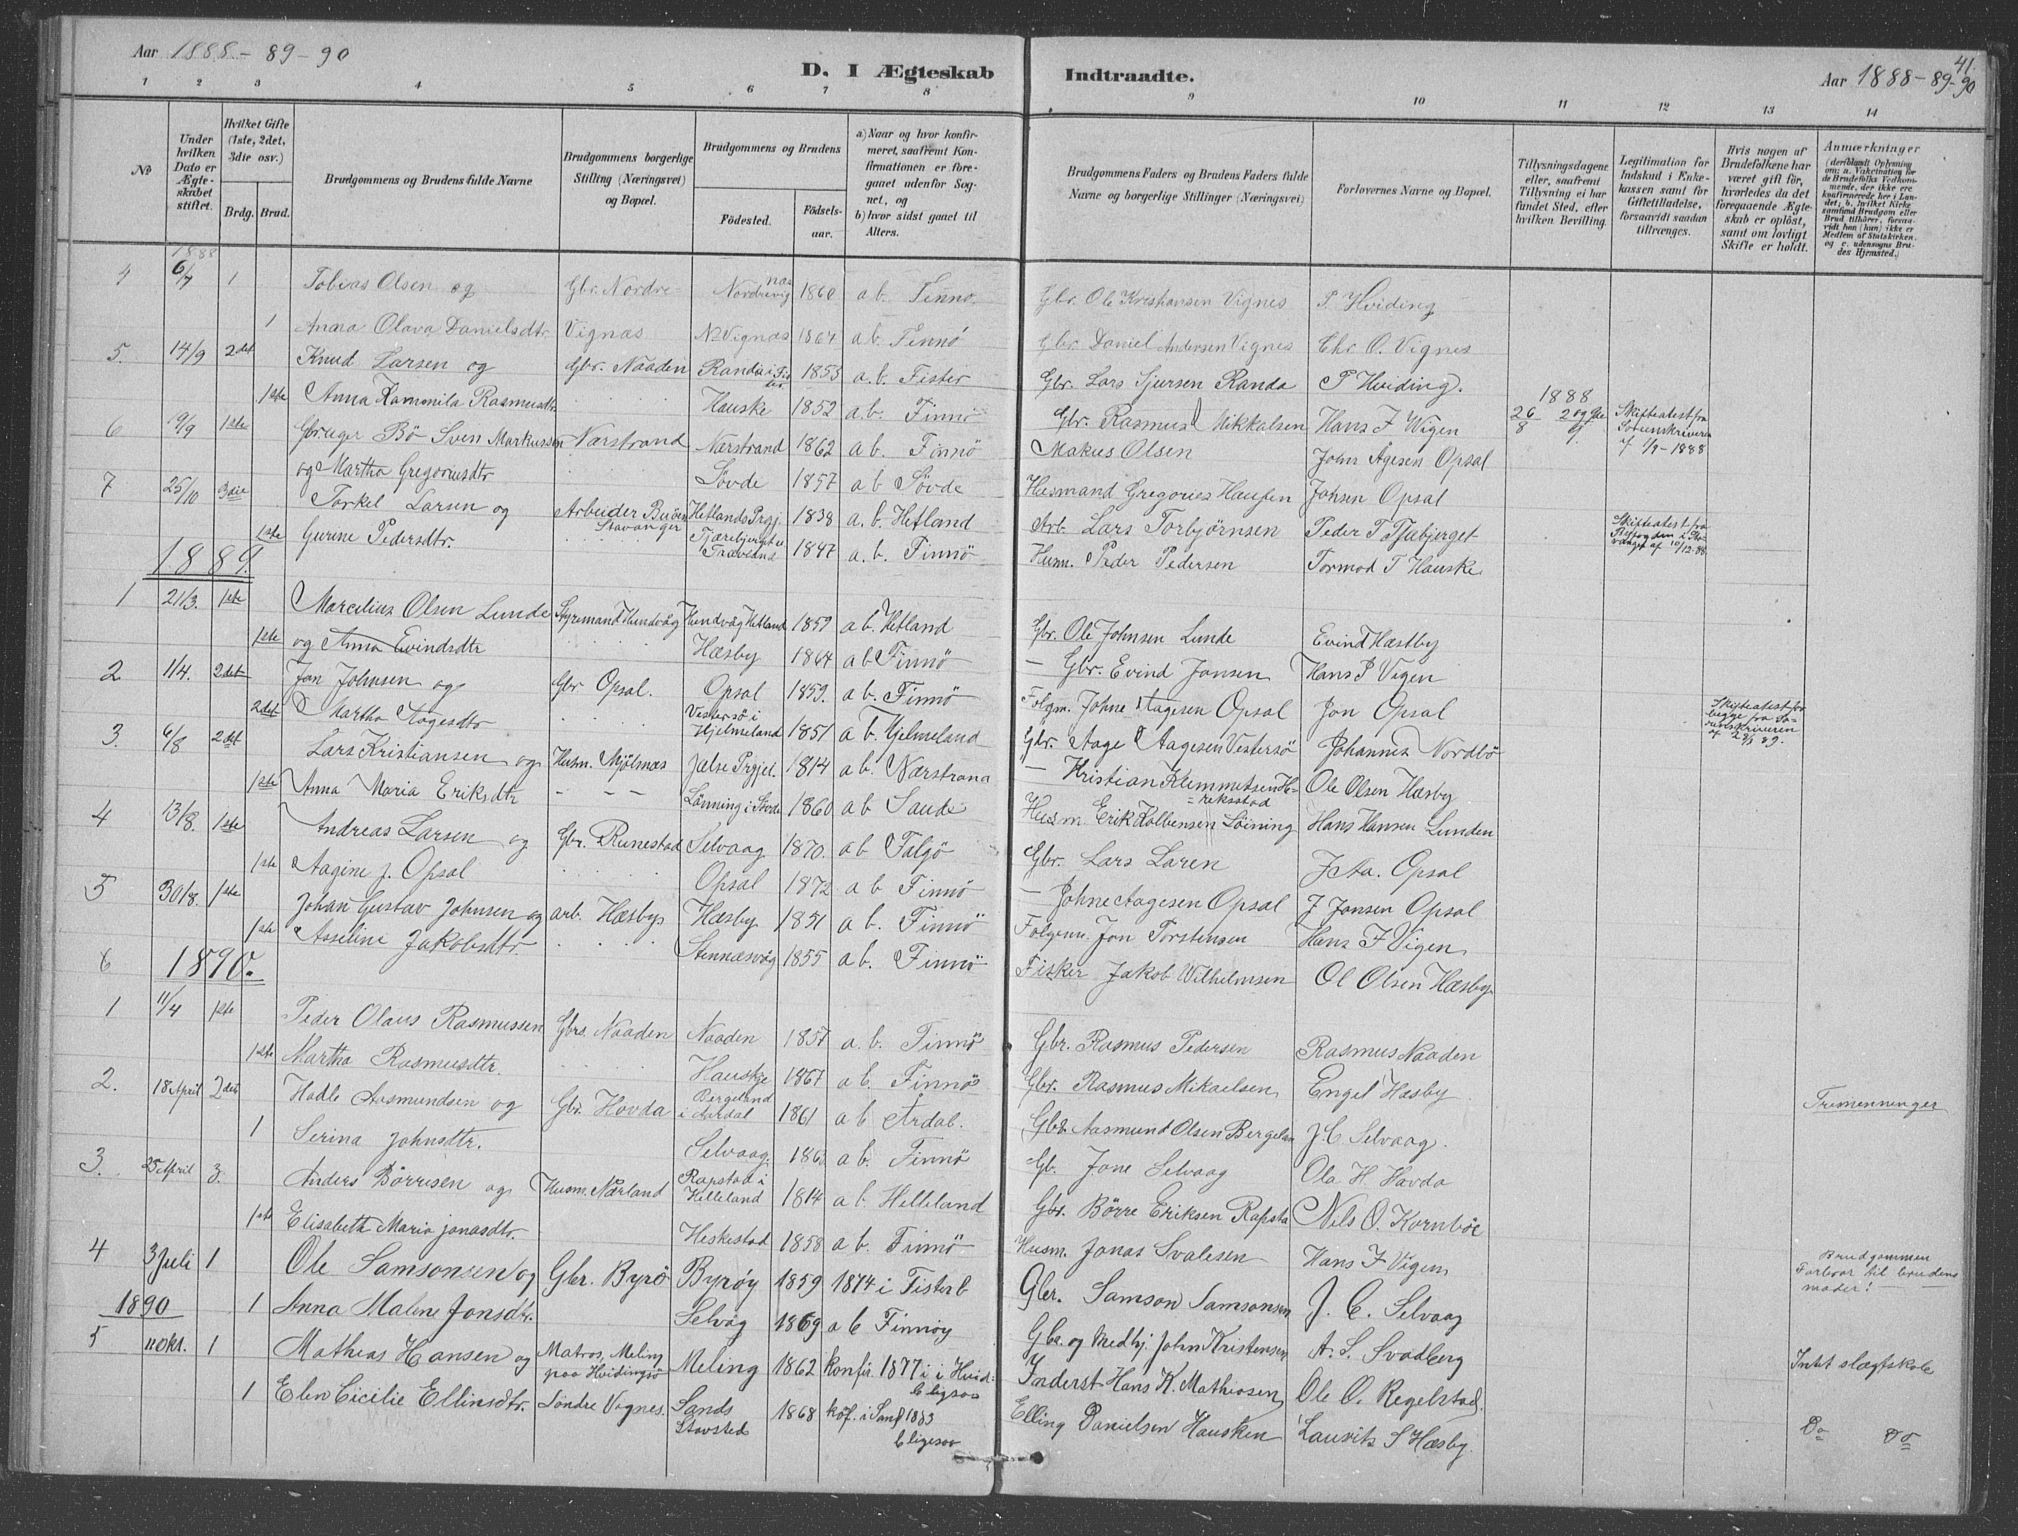 Aar 1888-89-90
D. I Ægteskab Indtraadte.
41.
Aar 1888-89-90
1 2 3 4 5 6 7 8 9 10 11 12 13 14
No
Under hvilken Dato er Ægteskabet stiftet.
Hvilket Gifte (1ste, 2det, 3die osv.)
Brdg. Brud.
Brudgommens og Brudens fulde Navne
Brudgommens borgerlige Stilling (Næringsvei) og Bopæl.
Brudgommens og Brudens
Födested. Födsels-aar.
a) Naar og hvor konfirmeret, saafremt Konfirmationen er foregaaet udenfor Sognet, og
b) hvor sidst gaaet til Alters.
Brudgommens Faders og Brudens Faders fulde Navne og borgerlige Stillinger (Næringsvei)
Forlovernes Navne og Bopæl.
Tillysningsdagene eller, saafremt Tillysning ei har fundet Sted, efter hvilken Bevilling.
Legitimation for Indskud i Enkekassen samt for Giftetilladelse, forsaavidt saadan tiltrænges.
Hvis nogen af Brudefolkene har været gift för, hvorledes da det foregaaende Ægteskab er oplöst, samt om lovligt Skifte er holdt.
Anmærkninger
(deriblandt Oplysning om: a. Vaccination for de Brudefolks Vedkommende, der ikke ere konfirmerede her i Landet; b. hvilket Kirkesamfund Brudgom eller Brud tilhörer, forsaavidt han (hun) ikke er Medlem af Statskirken, og c. udensogns Brudes Hjemsted.
1888
4 6/7 1 Tobias Olsen og Gbr. Nordre Nordrevignæs 1860 a b. Finnö. Gbr. Ole Kristiansen Vignes T Hviding
1 Anna Olava Danielsdtr. Vignæs N Vignæs 1864 a b. Finnö Gbr. Daniel Andersen Vignes Chr. O. Vignes
5. 14/9 2det Knud Larsen og Gbr. Naaden Randa i Fister 1853 a. b. Fister Gbr. Lars Sjursen Randa T Hviding.
1ste Anna Kamonila Rasmusdtr. Hauske 1852 a b. Finnö Gbr. Rasmus Mikkalsen Hans F Vigen 1888 26/8 2 og 9de/9. Skifteatest fra Sorenskriveren af 1/9-1888
6 19/9 1ste Gbruger Bö Sven Markussen Nærstrand Nærstrand 1862 a b. Finnö Makus Olsen John Agesen Opsal
og Martha Gregoriusdtr Sövde 1857 a b Sövde Husmand Gregorius Haugen Johsen Opsal
7 25/10 3die Torkel Larsen og Arbeider Buöen Stavanger Hetlands Prgj. 1838 a. b. Hetland Arb. Lars Torbjörnsen Peder T Tjabjerget
1ste Gurine Pedersdtr. 1847 a b. Finnö Husm. Peder Pedersen Tormod T Hauske
1889.
1 21/3. 1ste Marcelius Olsen Lunde Styrmand Hundvåg Hundvåg Hetland 1859 a b. Hetland Gbr. Ole Johnsen Lunde Evind Hæsby
1ste og Anna Evindsdtr Hæsby 1864 a b Finnö Gbr. Evind Jonsen Hans F Vigen
2 1/4. 2det Jon Johnsen og Gbr Opsal. Opsal 1859. a b. Finnö Folgm. Johne Aagesen Opsal Jon Opsal
2det Martha Aagesdtr Vestersö i Hjelmeland 1851 a b. Hjelmeland Gbr. Aage Aagesen Vestersö Johannes Nordbö
3. 6/8 2det Lars Kristiansen og Husm. Mjölsnæs Jelse Prgjel. 1814 a b. Nærstrand Kristian Klemmetsen Ole Olsen Hæsby
1ste Anna Maria Eriksdtr Lönning i Sovde 1860 a b Saude Husm. Erik Kolbensen Löining Hans Hansen Lunden
4 13/8. 1ste Andreas Larsen og Gbr. Runestad Selvaag 1870. a b Talgö Gbr. Lars Laren J Aa. Opsal
1ste Aagine J. Opsal Opsal 1872 a b Finnö Johne Aagesen Opsal J Jonsen Opsal
5 30/8. 1ste Johan Gustav Johnsen og arb. Hæsby Hæsby 1851 a b. Finnö Folgem. Jon Torstensen Hans F Vigen
6 1ste Asseline Jakobsdtr. Stennæsvåg 1855 a b. Finnö Fisker Jakob Wilhelmsen Ol Olsen Hæsby
1890.
1 11/4 1ste Peder Olaus Rasmussen Gbrs. Naaden Naaden 1857 a. b. Finnö Gbr. Rasmus Pedersen Rasmus Naaden
1ste Martha Rasmusdtr. Hauskje 1867 a b. Finnö Gbr. Rasmus Mikaelsen Engel Hæsby
2. 18 April 2det Hadle Aasmundsen og Gbr. Hovda Bergeland i Ardal 1861 a b Ardal. Gbr. Aasmund Olsen Bergelan J. C. Selvaag. Tremenninger
1 Serina Johnsdtr. Selvaag. a b. Finnö Gb. Jone Selvaag Ola H. Havda
3. 25 April 3. Anders Börresen og Husm. Nærland Rapstad i Helleland 1814 a b. Helleland Gbr. Börre Eriksen Rapsta Nils O. Kornböe
1ste Elisabeth Maria Jonasdtr. Heskestad 1858 a b. Finnö Husm. Jonas Svalesen Hans F Vigen
4 3 Juli 1 Ole Samsonsen og Gbr. Byrö Byröy 1859 1874 i Fister b Gbr. Samson Samsonsen J. C. Selvaag Brudgommen Farbror til brudens moder!
1890 1 Anna Maline Jonsdtr. Selvåg 1869 a b Finnöy Gbr. og Medhj. John Kristensen A. S. Svadberg
5 11 Okt. 1 Mathias Hansen og Matros, Meling paa Hvidingsö Meling 1862 konfir. 1877 i Hvid: b ligesaa Inderst Hans K. Mathiasen Ole O. Regelstad. Intet slægtskab
1 Elen Cicilie Ellinsdtr. Söndre Vignes. Sands Stavsted 1868 kof. i Sand 1883 b ligesaa Elling Danielsen Hausken Lauvits S Hæsby. Do Do
Skifteatest fra af 10/12-88.
Skifteatest for begge fra Sorenskriveren